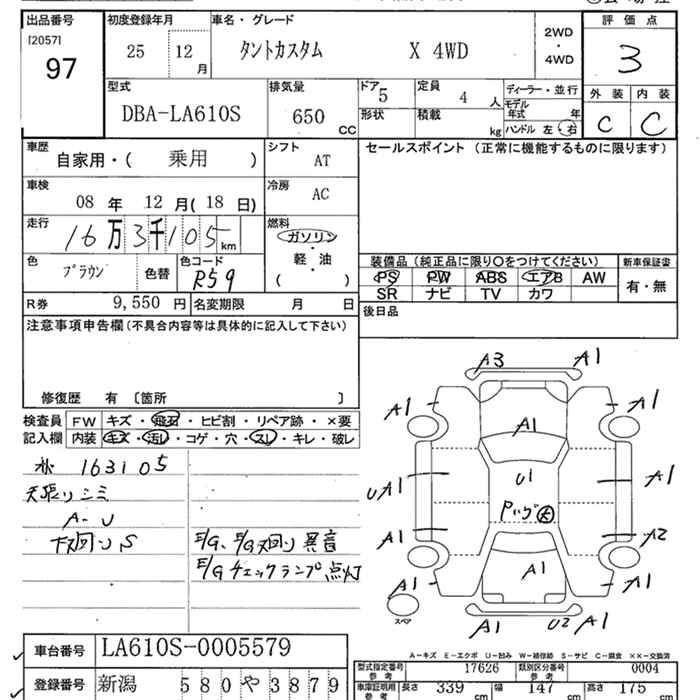 出品番号 初度登録年月 車名・グレード 2WD・4WD 評価点
[2057] 97 25 12月 タントカスタム X 4WD 3
型式 排気量 ドア 5 定員 4人 ディーラー・並行 外装 内装
DBA-LA610S 650 CC 形状 積載 kg モデル年式 年 C C
ハンドル 左・右
車歴 シフト セールスポイント (正常に機能するものに限ります)
自家用・( 乗用 ) AT
車検 冷房
08年 12月(18日) AC
走行 燃料
16万3千105km ガソリン
軽・油
( )
色 色替 色コード 装備品(純正品に限り〇をつけてください) 新車保証書
ブラウン R59 PS PW ABS エアB AW 有・無
SR ナビ TV カワ
R券 9,550円 名変期限 月 日 後日品
注意事項申告欄(不具合内容等は具体的に記入して下さい)
修復歴 有 〔箇所 〕
検査員 FW キズ・飛石・ヒビ割・リペア跡・×要
記入欄 内装 キズ・汚レ・コゲ・穴・スレ・キレ・破レ
163105
天張リシミ
A-U
下廻りS E/G、E/G廻り異音
E/Gチェックランプ点灯
A3 A1
A1 A1 A1
UA1 U1 A1
Pハゲ大
A1 A2
A1 A1 A1
スペア A1 U2 A1
A-キズ E-エクボ U-凹み W-補修跡 S-サビ C-腐食 ××-交換済
車台番号 LA610S-0005579
型式指定番号 参考 17626 類別区分番号 参考 0004
登録番号 新潟 580 や 3879
車庫証明用 参考 長さ 339cm 幅 147cm 高さ 175cm